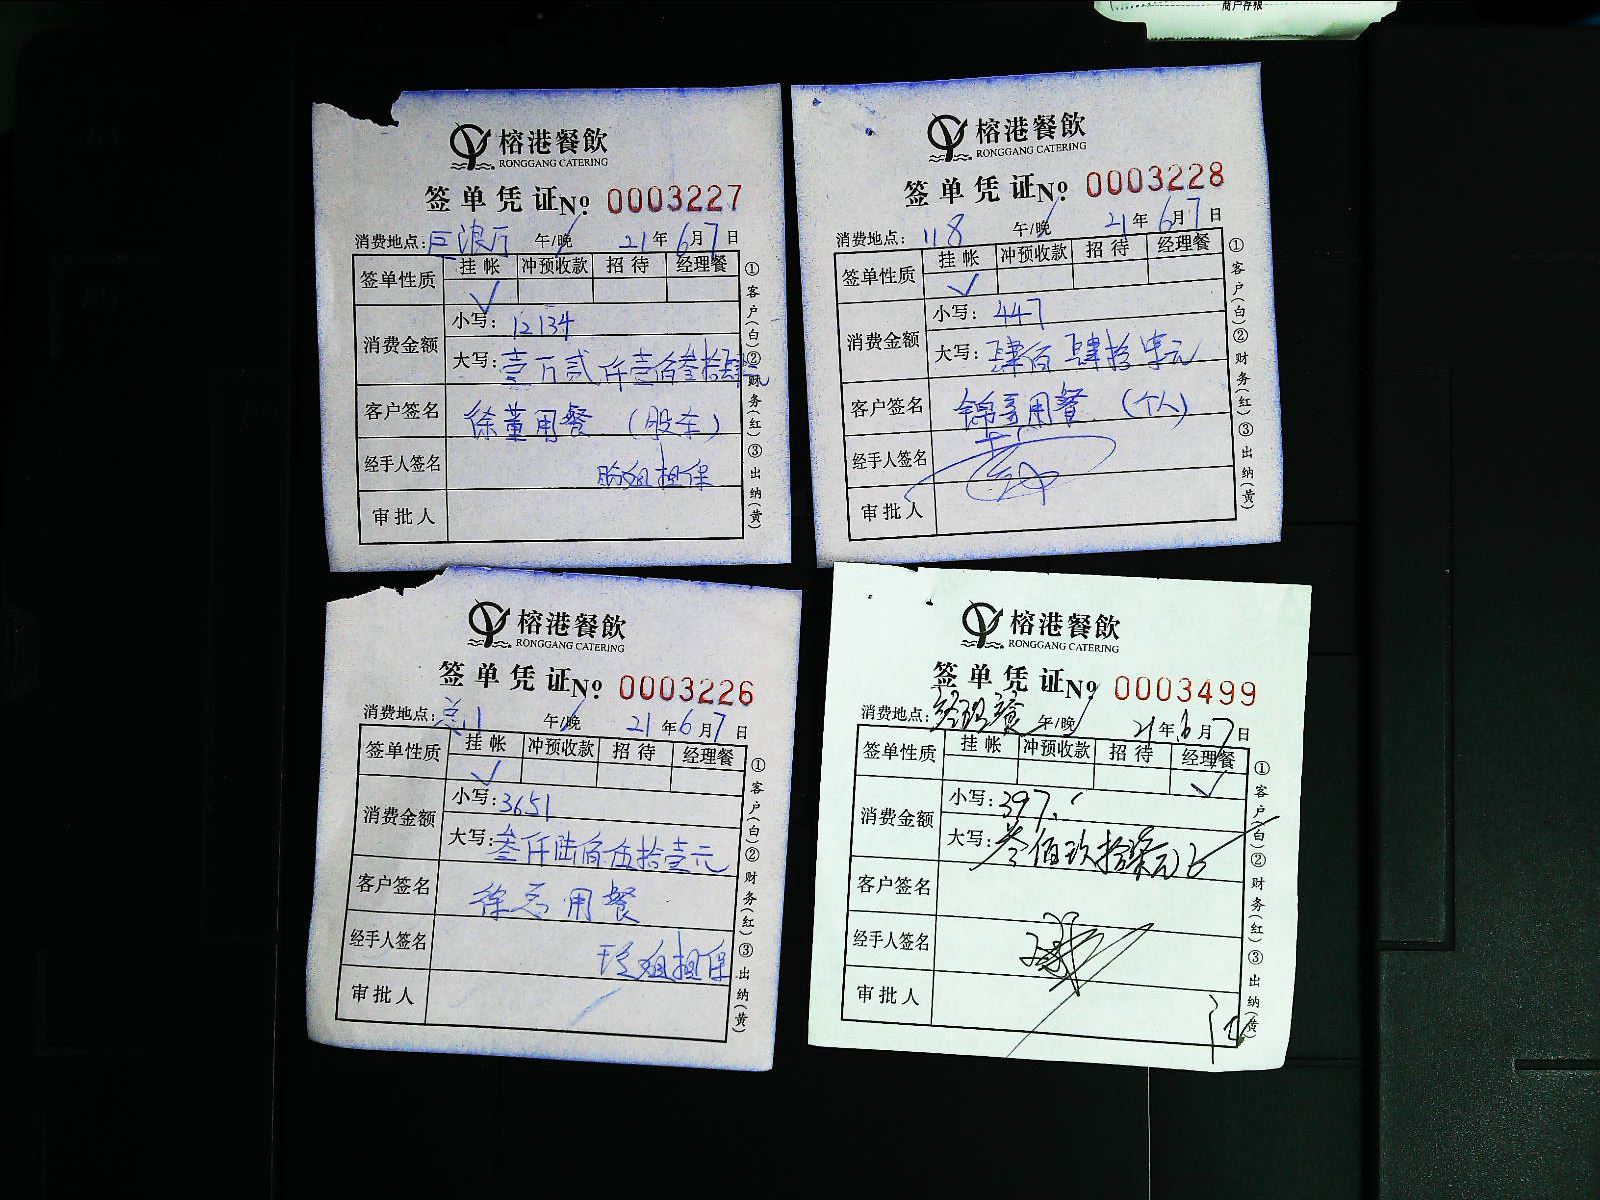 商户存根
榕港餐飲
RONGGANG CATERING
签单凭证№ 0003227
消费地点:巨浪厅 午/晚 21年6月7日
签单性质 挂帐 冲预收款 招待 经理餐
✓
消费金额 小写:12134
大写:壹万贰仟壹佰叁拾肆元
客户签名 徐董用餐 (股东)
经手人签名 姐担保
审批人
①客户(白)②财务(红)③出纳(黄)
榕港餐飲
RONGGANG CATERING
签单凭证№ 0003228
消费地点:118 午/晚 21年6月7日
签单性质 挂帐 冲预收款 招待 经理餐
✓
消费金额 小写:447
大写:肆佰肆拾柒元
客户签名 锦哥用餐 (个人)
经手人签名
审批人
①客户(白)②财务(红)③出纳(黄)
榕港餐飲
RONGGANG CATERING
签单凭证№ 0003226
消费地点:总1 午/晚 21年6月7日
签单性质 挂帐 冲预收款 招待 经理餐
✓
消费金额 小写:3651
大写:叁仟陆佰伍拾壹元
客户签名 徐总用餐
经手人签名 玲姐担保
审批人
①客户(白)②财务(红)③出纳(黄)
榕港餐飲
RONGGANG CATERING
签单凭证№ 0003499
消费地点:经理餐 午/晚 21年6月7日
签单性质 挂帐 冲预收款 招待 经理餐
✓
消费金额 小写:397
大写:叁佰玖拾柒元
客户签名
经手人签名
审批人
①客户(白)②财务(红)③出纳(黄)